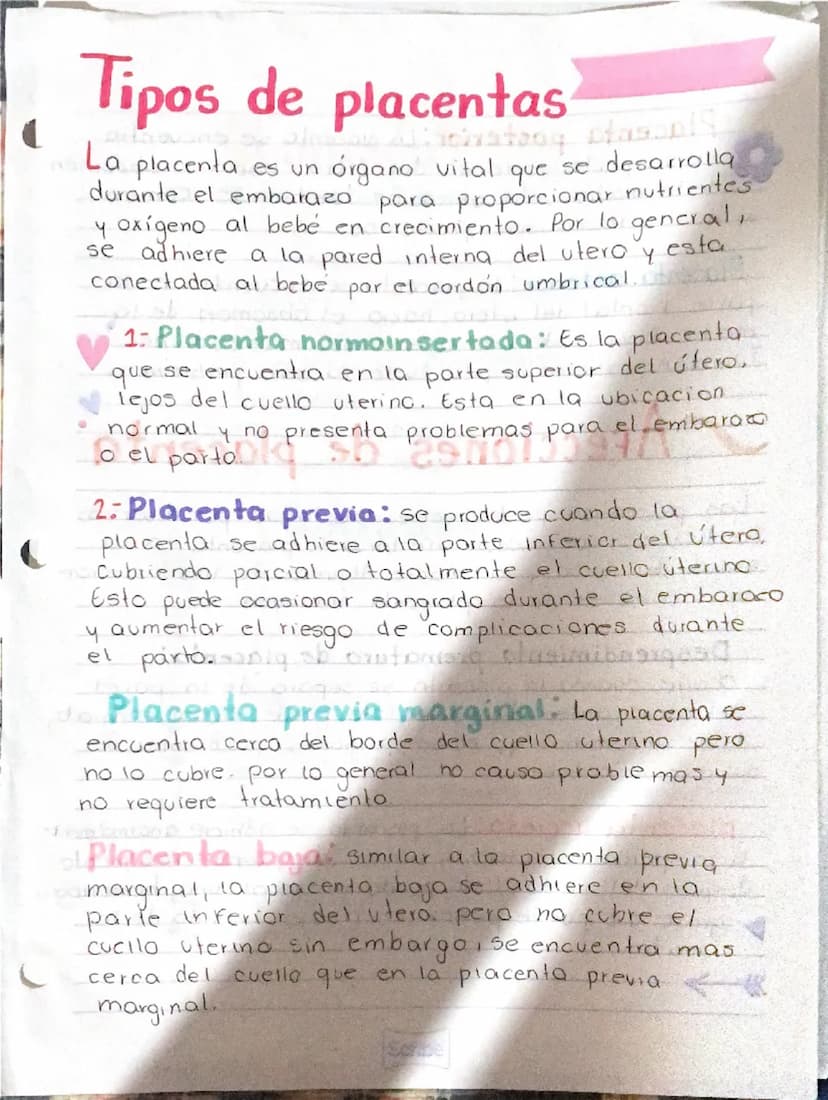 Tipos de placentas
La placenta es un órgano vital que se desarrolla
durante el embarazo para proporcionar nutrientes
y oxígeno al bebé en crecimiento. Por lo general,
se adhiere a la pared interna del utero y esta
conectada al bebé por el cordón umbrical.
1:- Placenta normoinsertada: Es la placenta
que se encuentra en la parte superior del útero,
lejos del cuello uterino. Esta en la ubicacion
normal y no presenta problemas para el embarazo
o el parto.
2:- Placenta previa: se produce cuando la
placenta se adhiere a la parte inferior del útero,
cubriendo parcial o totalmente el cuello úterino
Esto puede ocasionar sangrado durante el embarazo
y aumentar el riesgo de complicaciones durante
el parto.
Placenta previa marginal: La placenta se
encuentra cerca del borde del cuello uterino pero
no lo cubre. por lo general no causo problemas y
no requiere tratamiento
Placenta baja: similar a la placenta previa
marginal, la placenta baja se adhiere en la
parte inferior del utero pero no cubre el
cuello uterino sin embargo, se encuentra mas
cerca del cuello que en la placenta previa
marginal.
Scribe